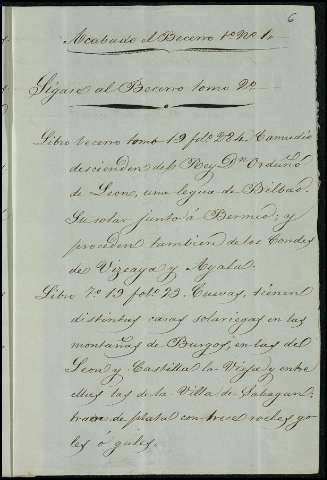 6
Acabado el Becerro 1º Nº 1º
Sigue al Becerro tomo 2º
Libro becerro tomo 19 folº 224. Zamudio
descienden del Rey Dn Ordoño
de Leon, una legua de Bilbao.
Su solar junto á Bermeo; y
proceden tambien de los Condes
de Vizcaya y Ayala.
Libro 7º 19 folº 23. Cuevas, tienen
distintas casas solariegas en las
montañas de Burgos, en las del
Leon y Castilla la Vieja y entre
ellas las de la Villa de Sahagun;
traen de plata con trece roeles go-
les ó gules.